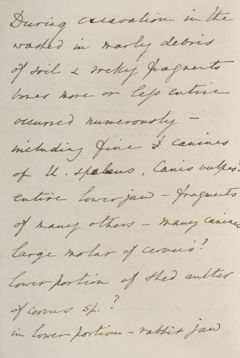 During excavation in the
washed in marly debris
of soil & rocky fragments
bones more or less entire
occurred numerously –
including fine canines
of U. spelaeus, Canis vulpes?
entire lower jaw – fragments
of many others – many canines
large molar of cervus?
lower portion of shed antler
of cervus sp. ?
in lower portion – rabbit jaw